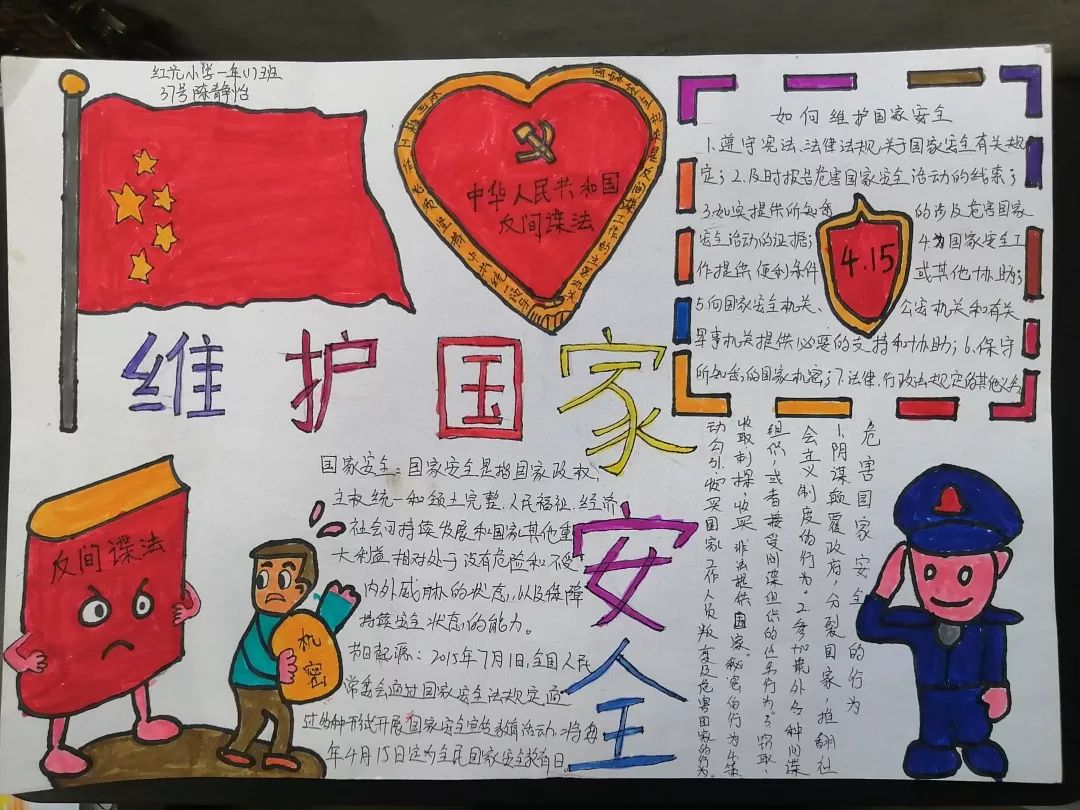 红光小学一年(1)班
37号 陈静怡
中华人民共和国
反间谍法
如何维护国家安全
1.遵守宪法、法律法规关于国家安全有关规
定；2.及时报告危害国家安全活动的线索；
3.如实提供所知悉的涉及危害国家
安全活动的证据；4.为国家安全工
作提供便利条件或其他协助；
5.向国家安全机关、公安机关和有关
军事机关提供必要的支持和协助；6.保守
所知悉的国家机密；7.法律、行政法规规定的其他义务
4.15
维护国家安全人王
国家安全：国家安全是指国家政权、
主权统一和领土完整、人民福祉、经济
社会可持续发展和国家其他重
大利益相对处于没有危险和不受
内外威胁的状态，以及保障
持续安全状态的能力。
节日起源：2015年7月1日，全国人民
常委会通过国家安全法规定通
过多种形式开展国家安全宣传教育活动，将每
年4月15日定为全民国家安全教育日。
反间谍法
机密
危害国家安全的行为
1.阴谋颠覆政府，分裂国家，推翻社
会主义制度的行为。2.参加境外各种间谍
组织，或者接受间谍组织的任务行为。3.窃取、
收取刺探，收买、非法提供国家秘密的行为。4.策
动勾引、收买国家工作人员叛变及危害国家的行为。